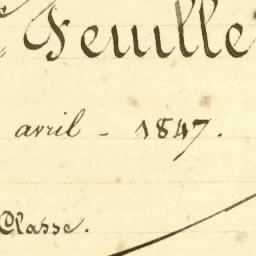 Feuille
avril - 1847.
Classe.